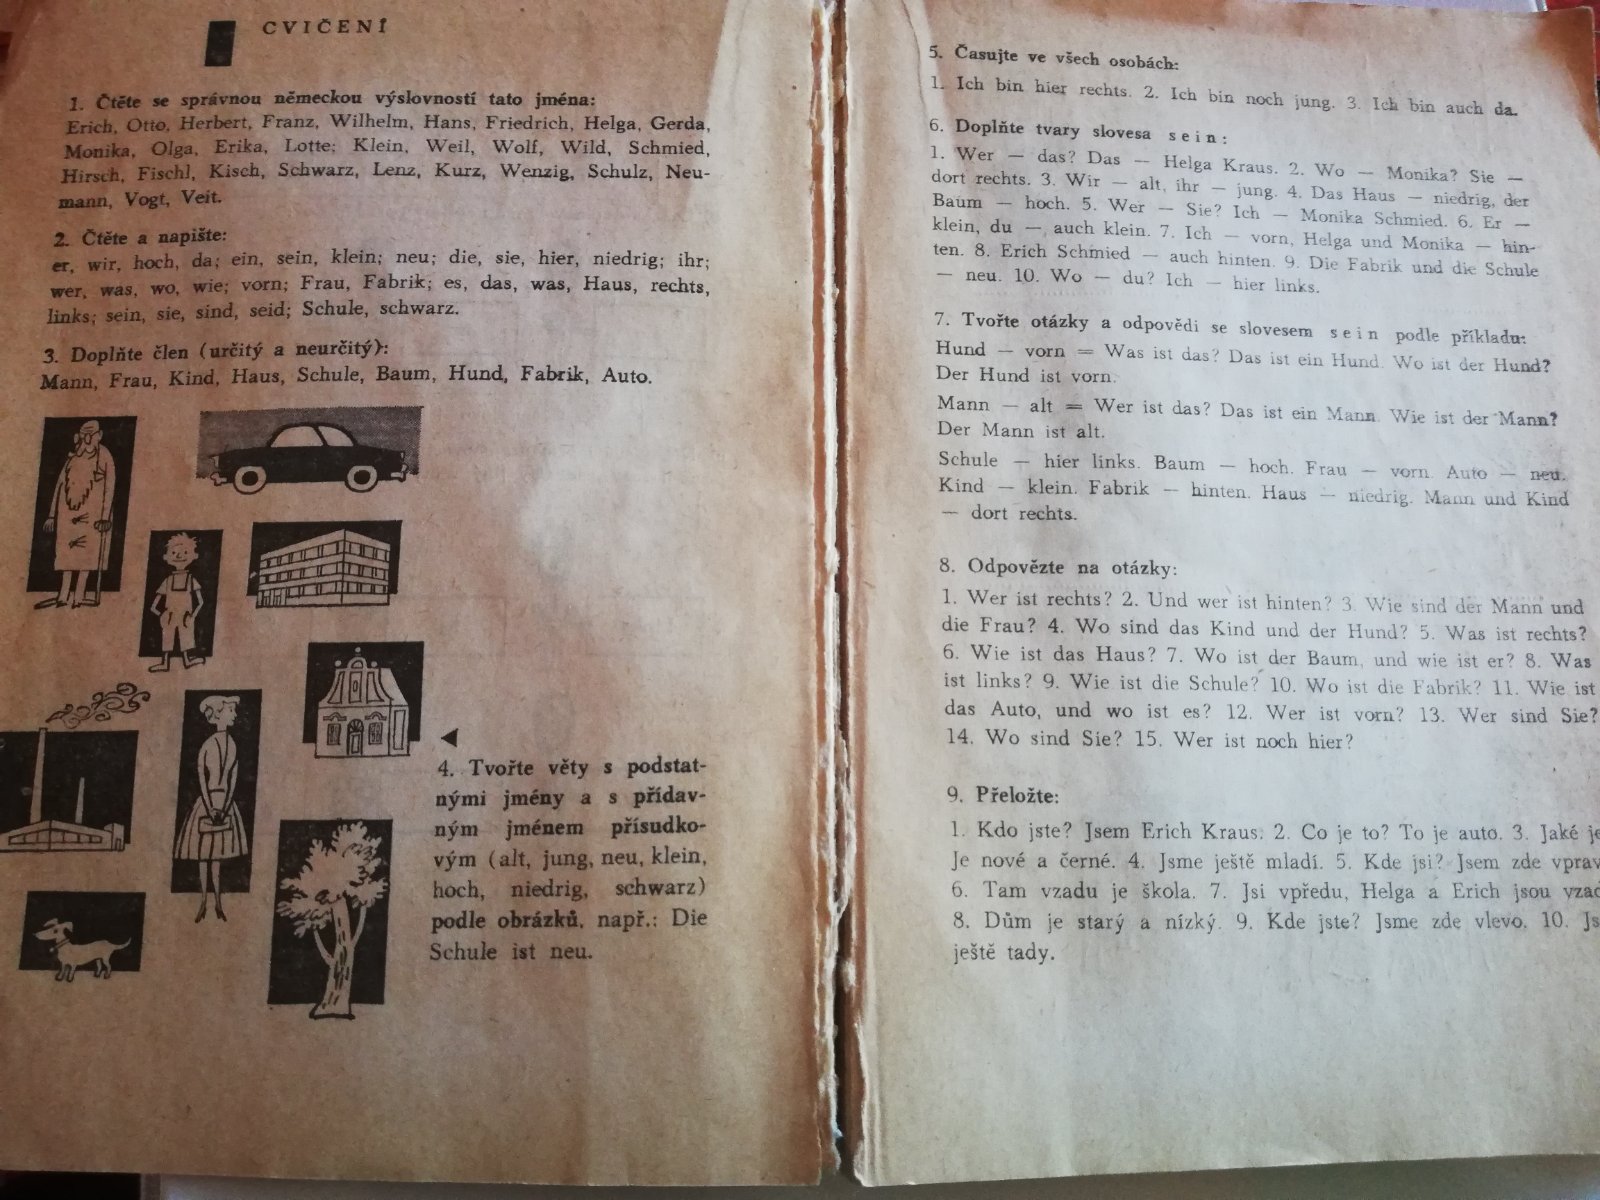 CVIČENÍ
1. Čtěte se správnou německou výslovností tato jména:
Erich, Otto, Herbert, Franz, Wilhelm, Hans, Friedrich, Helga, Gerda,
Monika, Olga, Erika, Lotte; Klein, Weil, Wolf, Wild, Schmied,
Hirsch, Fischl, Kisch, Schwarz, Lenz, Kurz, Wenzig, Schulz, Neu-
mann, Vogt, Veit.
2. Čtěte a napište:
er, wir, hoch, da; ein, sein, klein; neu; die, sie, hier, niedrig; ihr;
wer, was, wo, wie; vorn; Frau, Fabrik; es, das, was, Haus, rechts,
links; sein, sie, sind, seid; Schule, schwarz.
3. Doplňte člen (určitý a neurčitý):
Mann, Frau, Kind, Haus, Schule, Baum, Hund, Fabrik, Auto.
4. Tvořte věty s podstat-
nými jmény a s přídav-
ným jménem přísudko-
vým (alt, jung, neu, klein,
hoch, niedrig, schwarz)
podle obrázků, např.: Die
Schule ist neu.
5. Časujte ve všech osobách:
1. Ich bin hier rechts. 2. Ich bin noch jung. 3. Ich bin auch da.
6. Doplňte tvary slovesa sein:
1. Wer — das? Das — Helga Kraus. 2. Wo — Monika? Sie —
dort rechts. 3. Wir — alt, ihr — jung. 4. Das Haus — niedrig, der
Baum — hoch. 5. Wer — Sie? Ich — Monika Schmied. 6. Er —
klein, du — auch klein. 7. Ich — vorn, Helga und Monika — hin-
ten. 8. Erich Schmied — auch hinten. 9. Die Fabrik und die Schule
— neu. 10. Wo — du? Ich — hier links.
7. Tvořte otázky a odpovědi se slovesem sein podle příkladu:
Hund — vorn = Was ist das? Das ist ein Hund. Wo ist der Hund?
Der Hund ist vorn.
Mann — alt = Wer ist das? Das ist ein Mann. Wie ist der Mann?
Der Mann ist alt.
Schule — hier links. Baum — hoch. Frau — vorn. Auto — neu.
Kind — klein. Fabrik — hinten. Haus — niedrig. Mann und Kind
— dort rechts.
8. Odpovězte na otázky:
1. Wer ist rechts? 2. Und wer ist hinten? 3. Wie sind der Mann und
die Frau? 4. Wo sind das Kind und der Hund? 5. Was ist rechts?
6. Wie ist das Haus? 7. Wo ist der Baum, und wie ist er? 8. Was
ist links? 9. Wie ist die Schule? 10. Wo ist die Fabrik? 11. Wie ist
das Auto, und wo ist es? 12. Wer ist vorn? 13. Wer sind Sie?
14. Wo sind Sie? 15. Wer ist noch hier?
9. Přeložte:
1. Kdo jste? Jsem Erich Kraus. 2. Co je to? To je auto. 3. Jaké je
Je nové a černé. 4. Jsme ještě mladí. 5. Kde jsi? Jsem zde vprav
6. Tam vzadu je škola. 7. Jsi vpředu, Helga a Erich jsou vzad
8. Dům je starý a nízký. 9. Kde jste? Jsme zde vlevo. 10. Js
ještě tady.